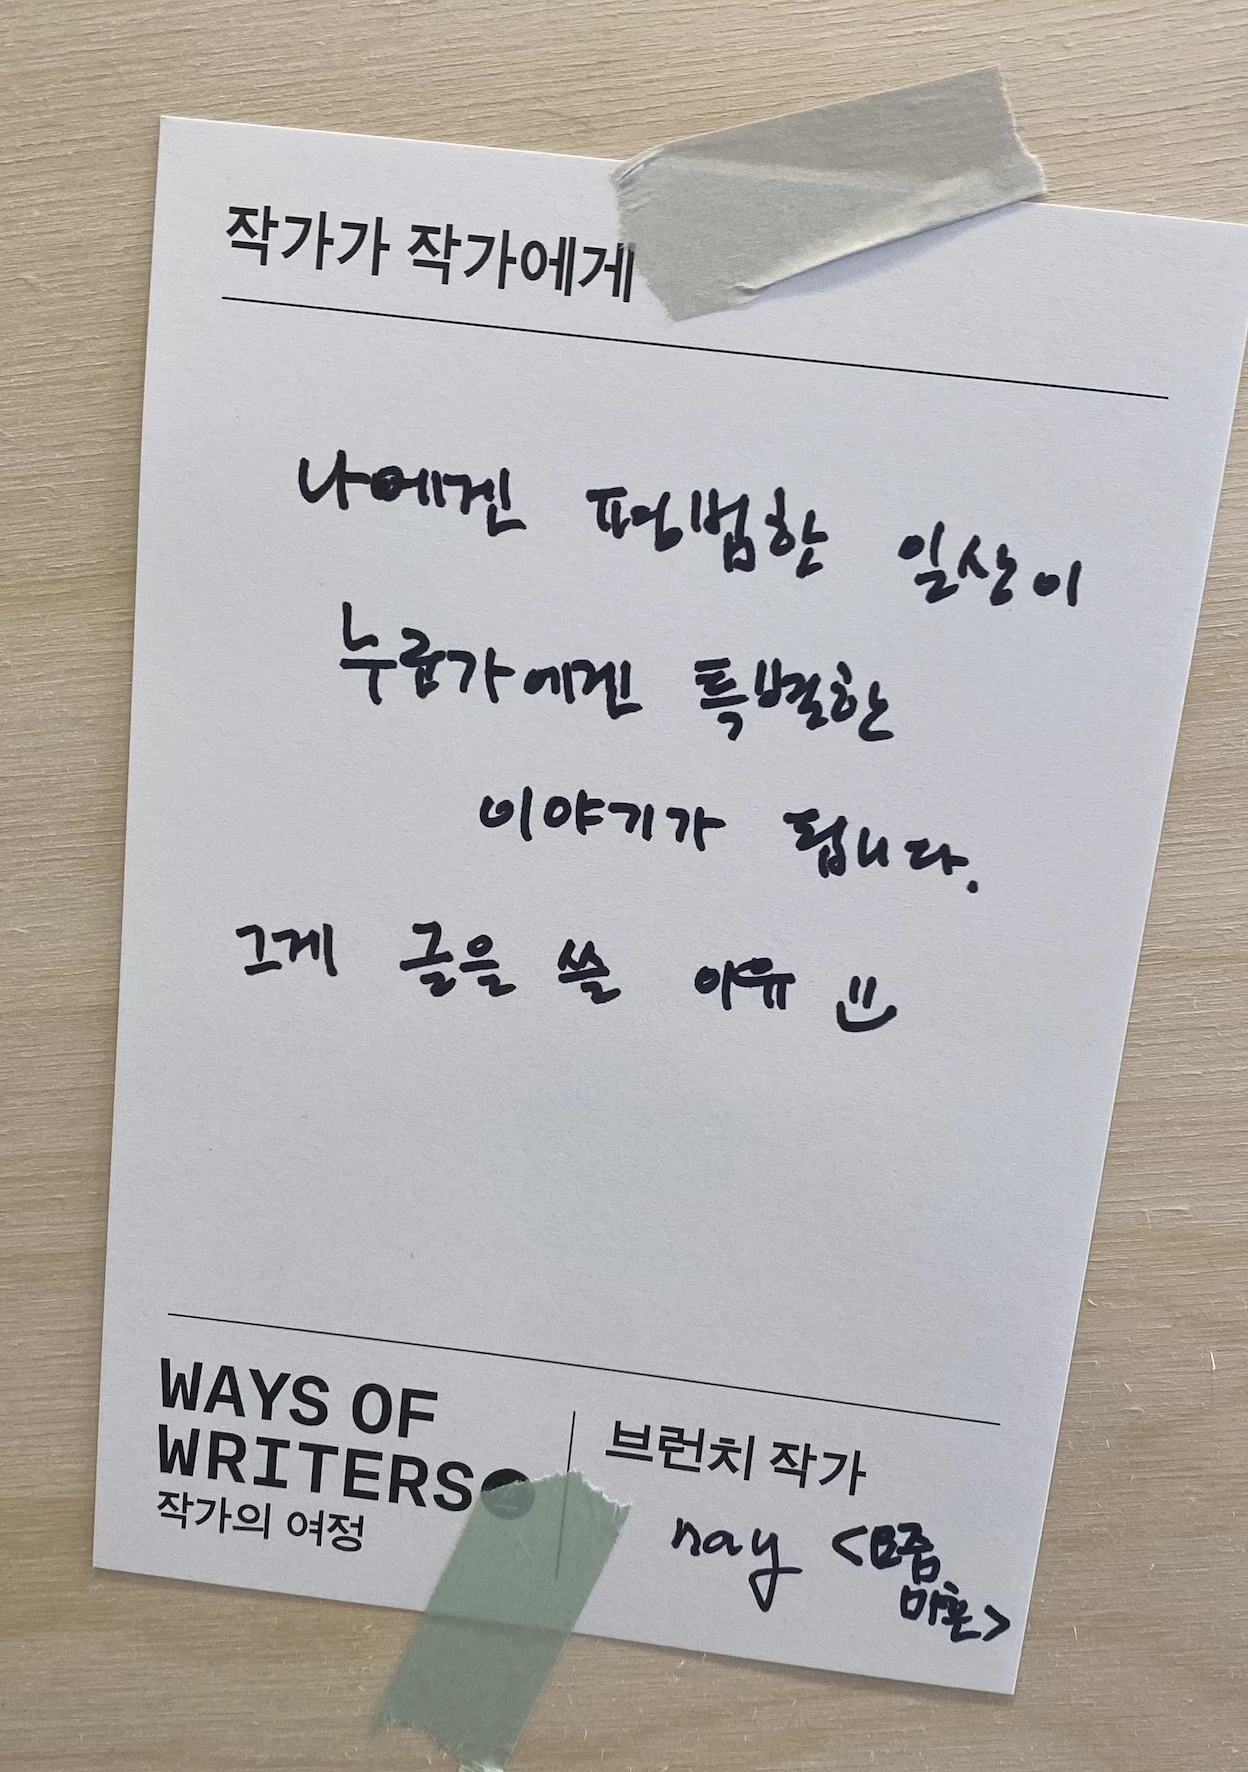 작가가 작가에게
나에겐 평범한 일상이
누군가에겐 특별한
이야기가 됩니다.
그게 글을 쓸 이유
WAYS OF
WRITERS
작가의 여정
브런치 작가
nay <요즘
마흔>